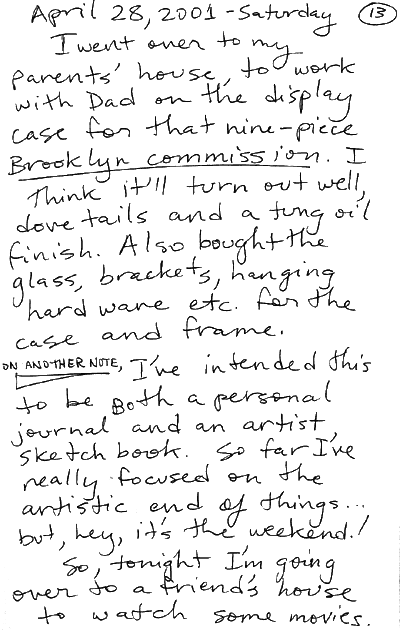 April 28, 2001 - Saturday (13)
I went over to my
parents' house, to work
with Dad on the display
case for that nine-piece
Brooklyn commission. I
think it'll turn out well,
dove tails and a tung oil
finish. Also bought the
glass, brackets, hanging
hard ware etc. for the
case and frame.
ON ANOTHER NOTE, I've intended this
to be Both a personal
journal and an artist,
sketch book. So far I've
really focused on the
artistic end of things...
but, hey, it's the weekend!
So, tonight I'm going
over to a friend's house
to watch some movies.